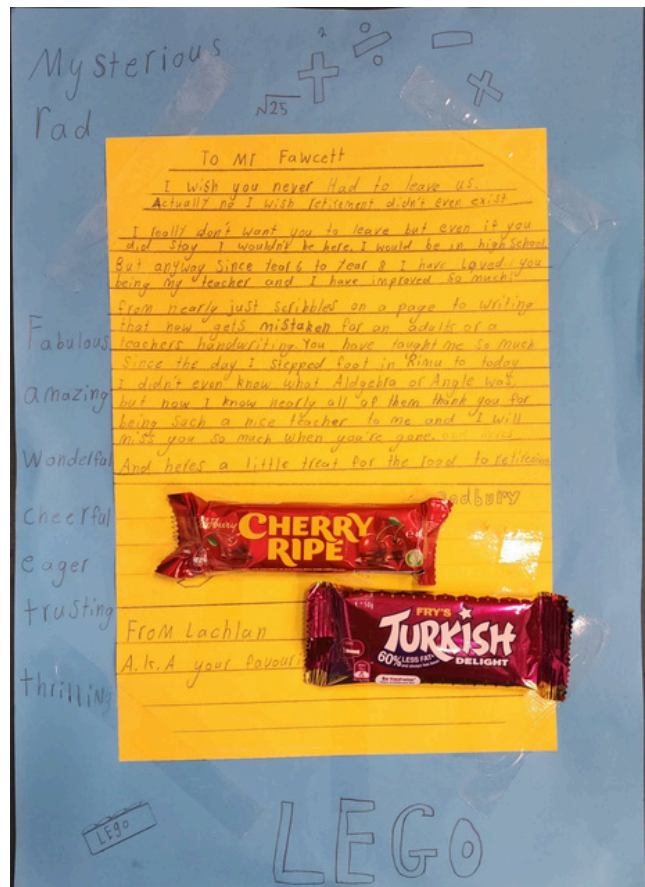 Mysterious
rad
√25
To Mr Fawcett
I wish you never Had to leave us.
Actually no I wish retirement didn't even exist
I really don't want you to leave but even if you
did stay I wouldn't be here. I would be in high school.
But anyway Since Year 6 to Year 8 I have Loved you
being my teacher and I have improved so much!
from nearly just scribbles on a page to writing
that now gets mistaken for an adults or a
teachers handwriting. You have taught me so much
Since the day I stepped foot in Rimu to today
I didn't even know what Aldgebra or Angle was,
but now I know nearly all of them thank you for
being such a nice teacher to me and I will
miss you so much when you're gone.
And heres a little treat for the road to retirement
Fabulous
amazing
Wonderful
Cheerful
eager
trusting
thrilling
CHERRY
RIPE
FRY'S
TURKISH
DELIGHT
60% LESS FAT
From Lachlan
A.k.A your
LEGO
LEGO